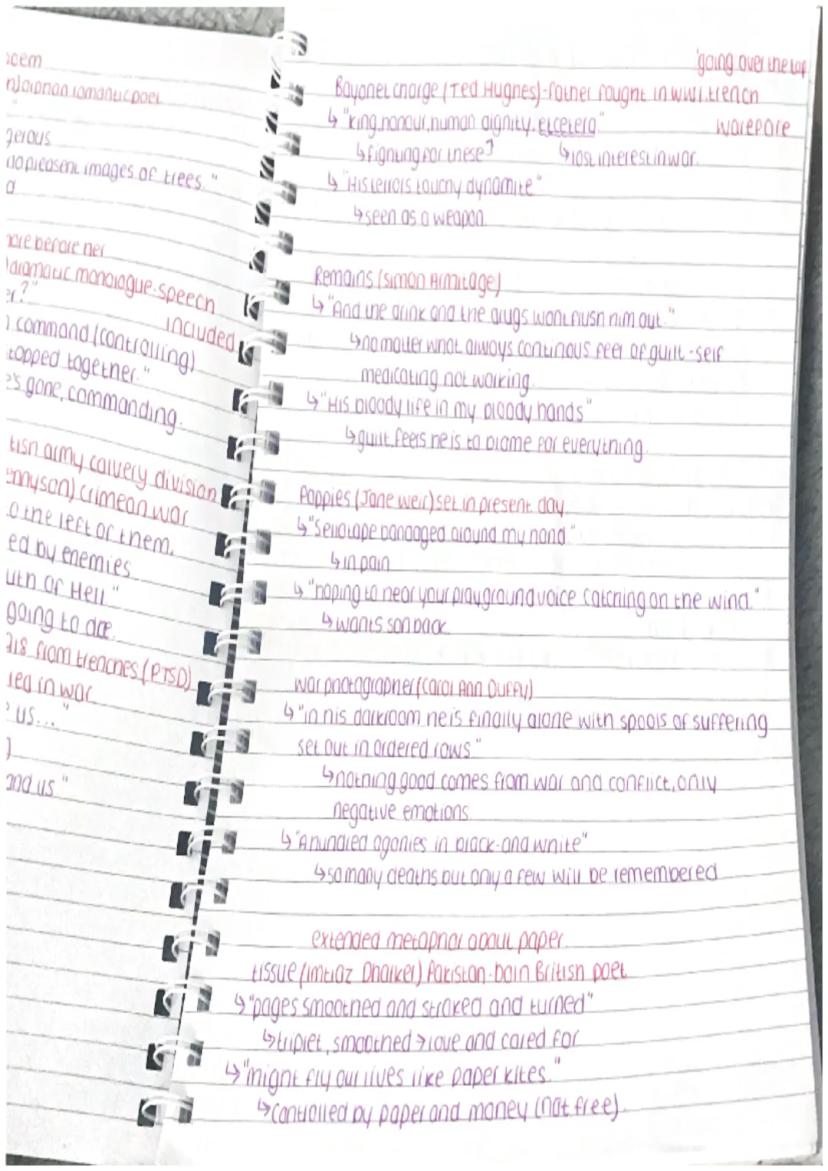 oem
romantic poet
"
gerous
pleasent images of trees."
d
before her
dramatic monologue-speech
er?"
included
command (controlling)
topped together."
e's gone, commanding.
tish army calvery division
ennyson) crimean war
o the left of them,
ed by enemies
uth of Hell"
going to die.
from trenches (PTSD)
ied in war
us..."
)
and us."
'going over the top
Bayonet charge (Ted Hughes)-father fought in WW1.trench
warefare
↳"king,honour,human dignity,etcetera"
↳fighting for these? ↳lost interest in war.
↳"His terrors touchy dynamite"
↳seen as a weapon.
Remains (Simon Armitage)
↳"And the drink and the drugs wont flush him out."
↳no matter what always continous feer of guilt-self
medicating not working.
↳"His bloody life in my bloody hands"
↳guilt,feels he is to blame for everything.
Poppies (Jane weir) set in present day
↳"Sellotape bandaged around my hand"
↳in pain
↳"hoping to hear your playground voice catching on the wind."
↳wants son back
war photographer (Carol Ann Duffy)
↳"in his darkroom he is finally alone with spools of suffering
set out in ordered rows"
↳nothing good comes from war and conflict,only
negative emotions
↳"A hundred agonies in black-and white"
↳so many deaths but only a few will be remembered
extended metaphor about paper.
tissue (imtiaz Dharker) Pakistan-born British poet
↳"pages smoothed and stroked and turned"
↳triplet, smoothed→love and cared for
↳"might fly our lives like paper kites."
↳Controlled by paper and money (not free).